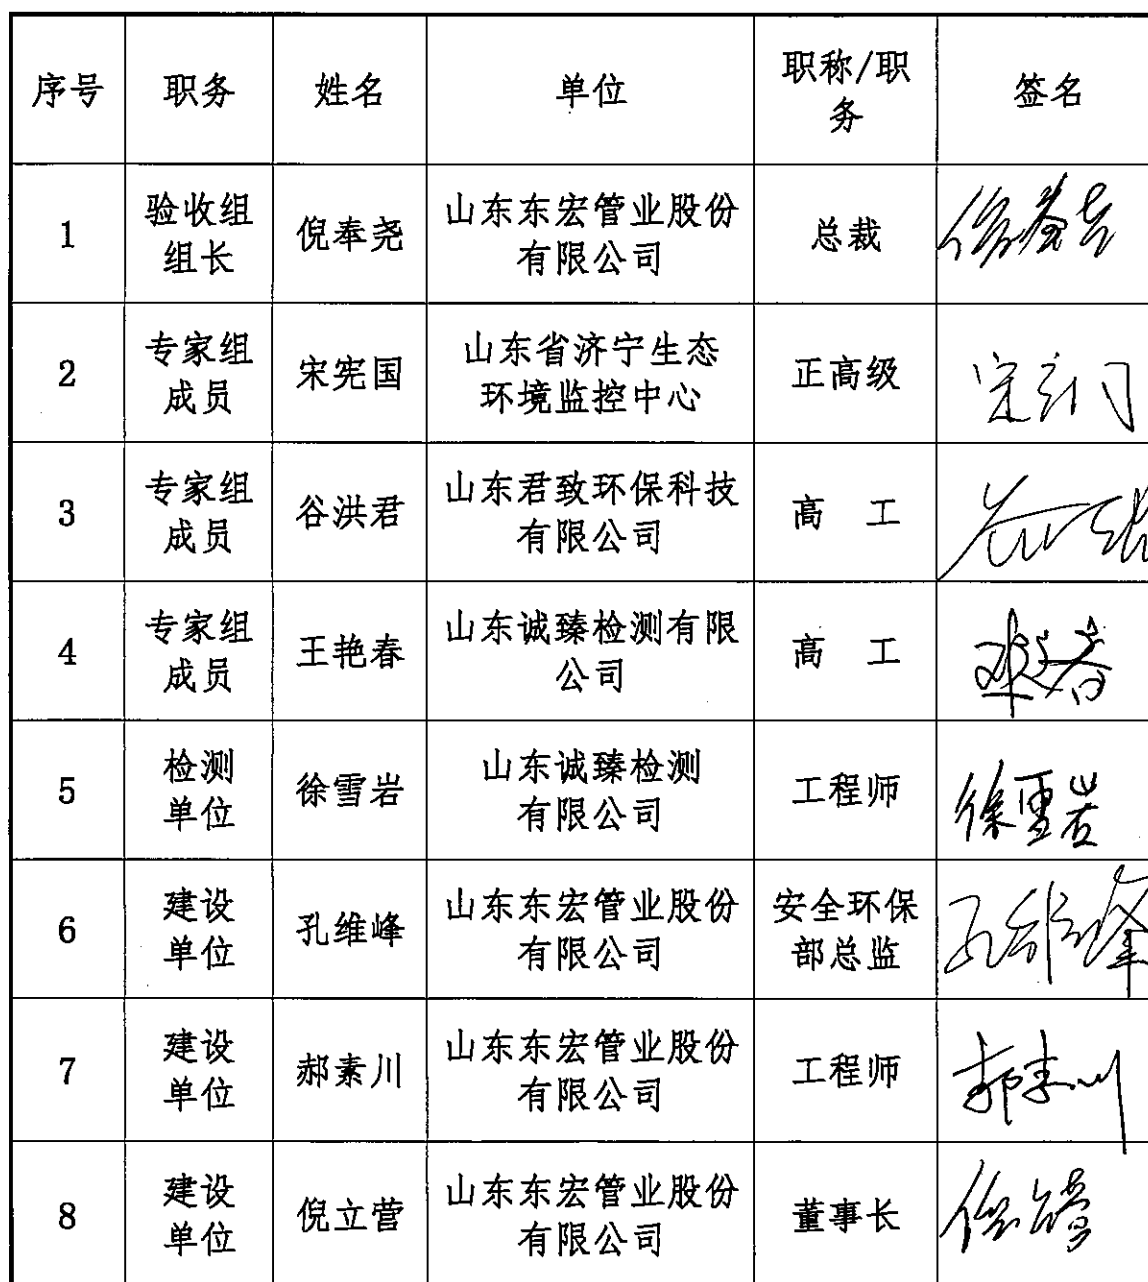 序号 职务 姓名 单位 职称/职
务 签名
1 验收组
组长 倪奉尧 山东东宏管业股份
有限公司 总裁 倪奉尧
2 专家组
成员 宋宪国 山东省济宁生态
环境监控中心 正高级
3 专家组
成员 谷洪君 山东君致环保科技
有限公司 高 工
4 专家组
成员 王艳春 山东诚臻检测有限
公司 高 工 王艳春
5 检测
单位 徐雪岩 山东诚臻检测
有限公司 工程师 徐雪岩
6 建设
单位 孔维峰 山东东宏管业股份
有限公司 安全环保
部总监 孔维峰
7 建设
单位 郝素川 山东东宏管业股份
有限公司 工程师 郝素川
8 建设
单位 倪立营 山东东宏管业股份
有限公司 董事长 倪立营